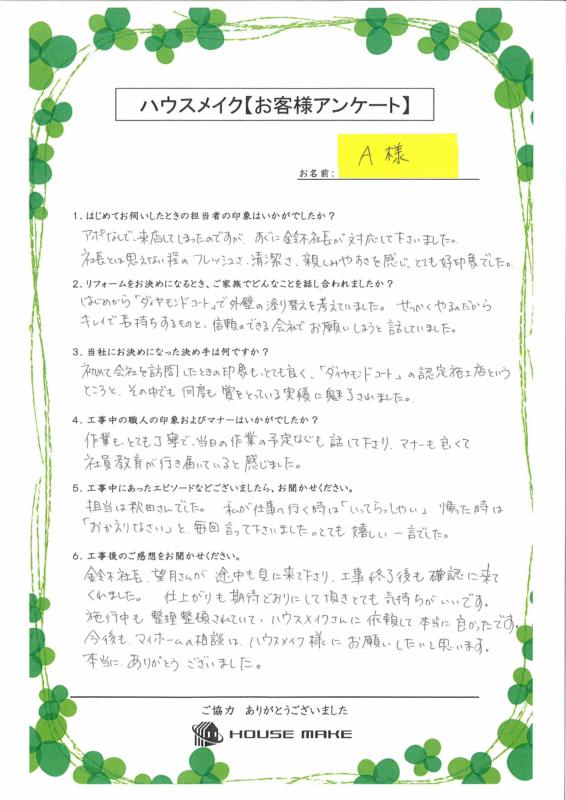 ハウスメイク【お客様アンケート】
A 様
お名前：
1．はじめてお伺いしたときの担当者の印象はいかがでしたか？
アポなしで、来店してしまったのですが、すぐに鈴木社長が対応して下さいました。
社長とは思えない程のフレッシュさ、清潔さ、親しみやすさを感じ、とても好印象でした。
2．リフォームをお決めになるとき、ご家族でどんなことを話し合われましたか？
はじめから「ダイヤモンドコート」で外壁の塗り替えを考えていました。せっかくやるのだから
キレイで長持ちするものと、信頼のできる会社でお願いしようと話していました。
3．当社にお決めになった決め手は何ですか？
初めて会社を訪問したときの印象もとても良く、「ダイヤモンドコート」の認定施工店という
ところと、その中でも何度も賞をとっている実績に魅了されました。
4．工事中の職人の印象およびマナーはいかがでしたか？
作業もとても丁寧で、当日の作業の予定なども話して下さり、マナーも良くて
社員教育が行き届いていると感じました。
5．工事中にあったエピソードなどございましたら、お聞かせください。
担当は秋田さんでした。私が仕事へ行く時は「いってらっしゃい」帰った時は
「おかえりなさい」と、毎回言って下さいました。とても嬉しい一言でした。
6．工事後のご感想をお聞かせください。
鈴木社長、望月さんが途中も見に来て下さり、工事終了後も確認に来て
くれました。仕上がりも期待どおりにして頂きとても気持ちがいいです。
施行中も整理整頓されていて、ハウスメイクさんに依頼して本当に良かったです。
今後も、マイホームの相談は、ハウスメイク様にお願いしたいと思います。
本当に、ありがとうございました。
ご協力 ありがとうございました
HOUSE MAKE